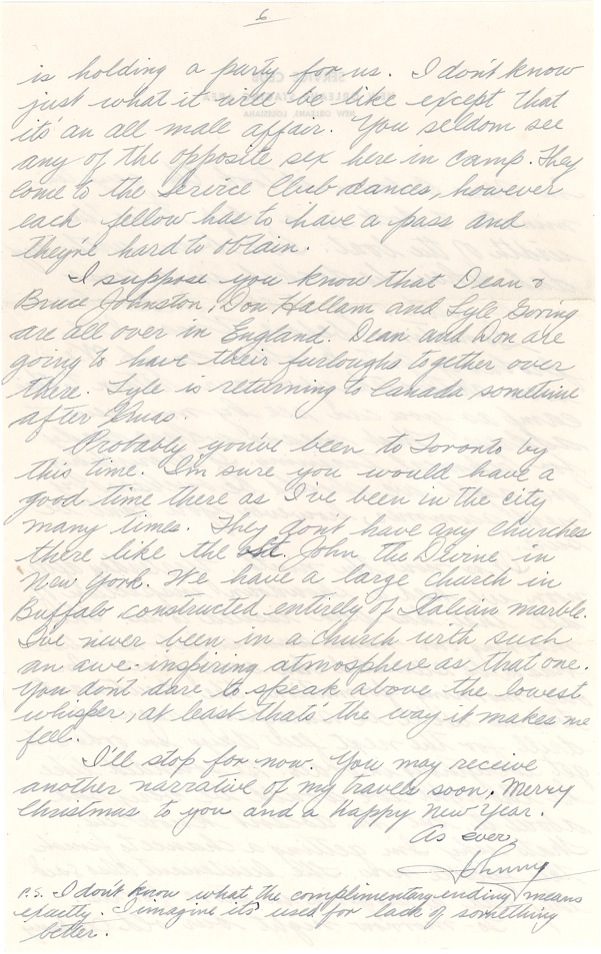 6
is holding a party for us. I don't know
just what it will be like except that
its' an all male affair. You seldom see
any of the opposite sex here in camp. They
come to the service Club dances, however
each fellow has to have a pass and
they're hard to obtain.
I suppose you know that Dean &
Bruce Johnston, Don Hallam and Lyle Goring
are all over in England. Dean and Don are
going to have their furloughs together over
there. Lyle is returning to Canada sometime
after Xmas.
Probably you've been to Toronto by
this time. I'm sure you would have a
good time there as I've been in the city
many times. They don't have any churches
there like the St. John the Divine in
New York. We have a large church in
Buffalo constructed entirely of Italian marble.
I've never been in a church with such
an awe-inspiring atmosphere as that one.
You don't dare to speak above the lowest
whisper, at least thats' the way it makes me
feel.
I'll stop for now. You may receive
another narrative of my travels soon. Merry
Christmas to you and a Happy New Year.
As ever,
Johnny
P.S. I don't know what the complimentary ending means
exactly. I imagine its' used for lack of something
better.